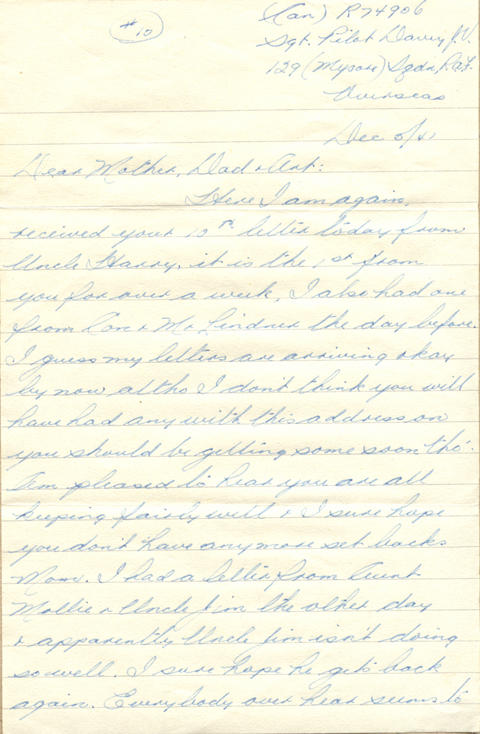 #10
(Can) R74906
Sgt. Pilot Davey J.V.
129 (Mysore) Sqdn, R.A.F.
Overseas
Dec 5/41
Dear Mother, Dad & Art:
Here I am again,
received your 10th letter today from
Uncle Harry, it is the 1st from
you for over a week, I also had one
from Con & Mr Lindner the day before.
I guess my letters are arriving okay
by now altho I don't think you will
have had any with this address on
you should be getting some soon tho'.
Am pleased to hear you are all
keeping fairly well & I sure hope
you don't have any more set backs
Mom. I had a letter from Aunt
Mollie & Uncle Jim the other day
& apparently Uncle Jim isn't doing
so well. I sure hope he gets back
again. Everybody over hear seems to